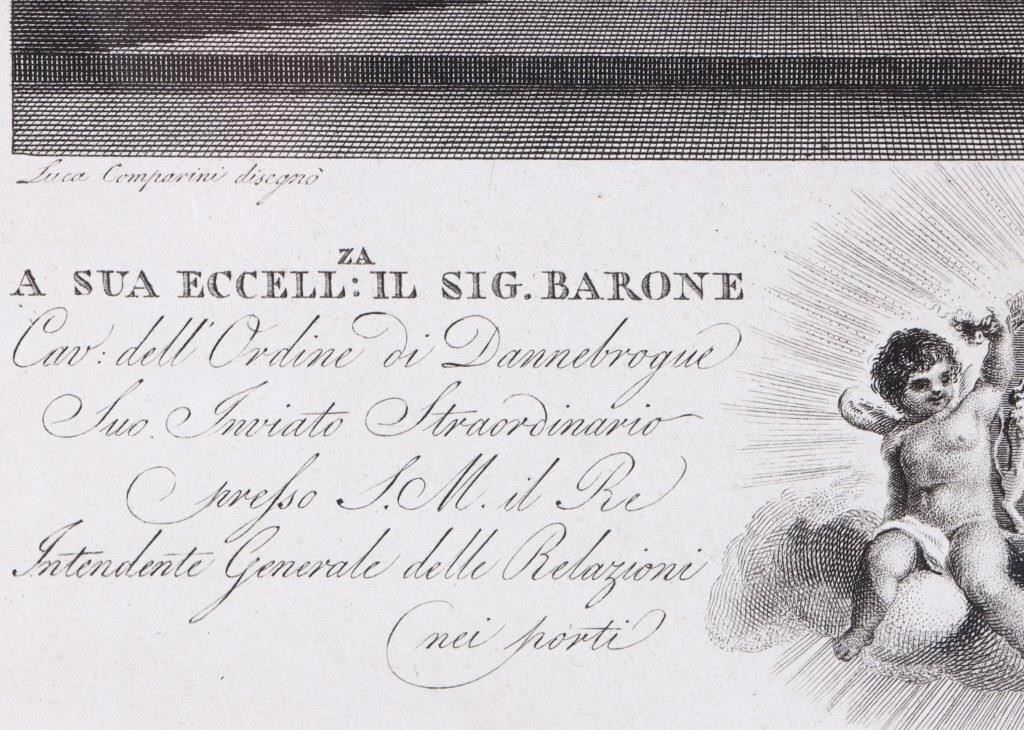 Luca Comparini disegnò
A SUA ECCELL:ZA IL SIG. BARONE
Cav: dell' Ordine di Dannebrogue
Suo Inviato Straordinario
presso S. M. il Re
Intendente Generale delle Relazioni
nei porti